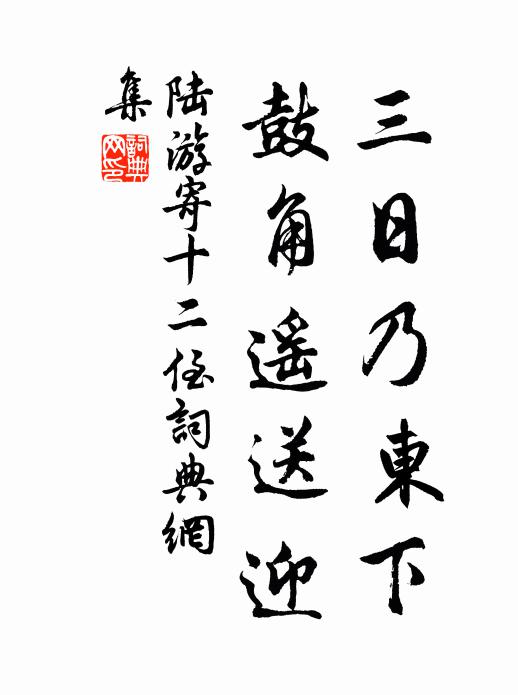 三日乃東下
鼓角遥送迎
陆游寄十二侄詞典網
集
詞典網印